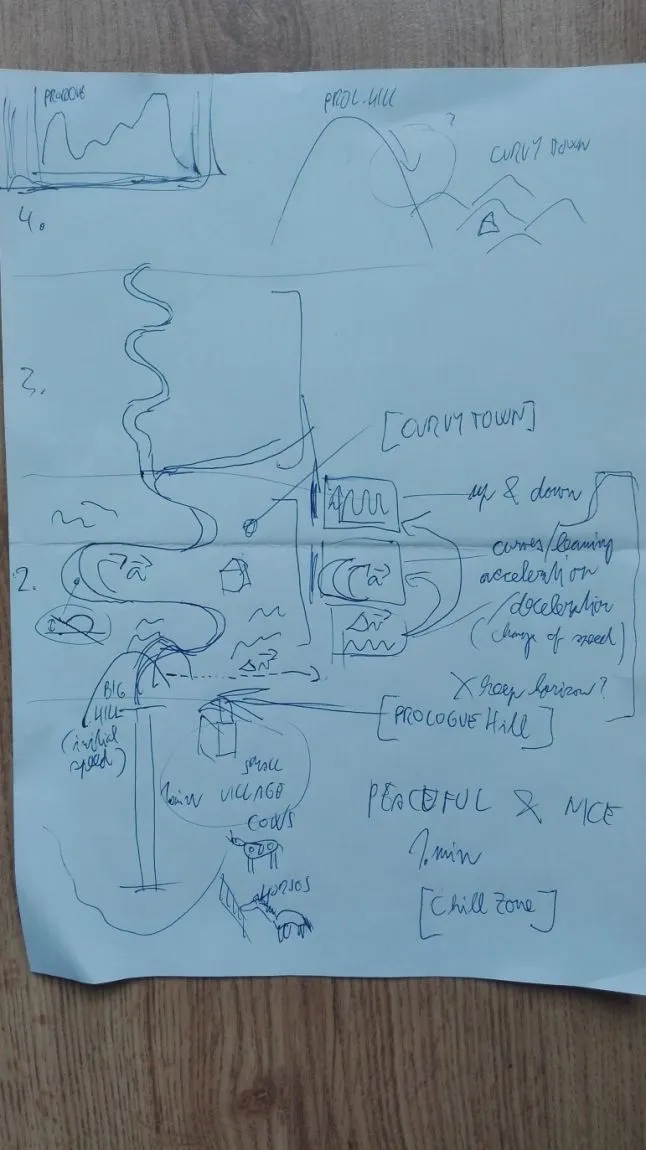 PROL. HILL
?
CURVY DOWN
4.
3.
[CURVY TOWN]
up & down
2.
a
a
curves/leaning
acceleration
/deceleration
(change of speed)
Δv
Δv
BIG
HILL
(initial
speed)
X keep horizon?
[PROLOGUE Hill]
SMALL
VILLAGE
1 min
COWS
HORSES
PEACEFUL & NICE
1. min
[Chill Zone]